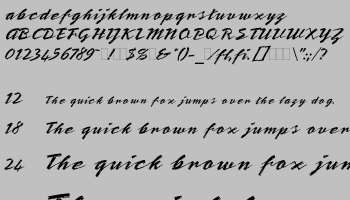 abcdefghijklmnopqrstuvwxyz
ABCDEFGHIJKLMNOPQRSTUVWXYZ
0123456789 ! $% & "()-_ /fl,fi. [] \":;/?
12 The quick brown fox jumps over the lazy dog.
18 The quick brown fox jumps over
24 The quick brown fox jum